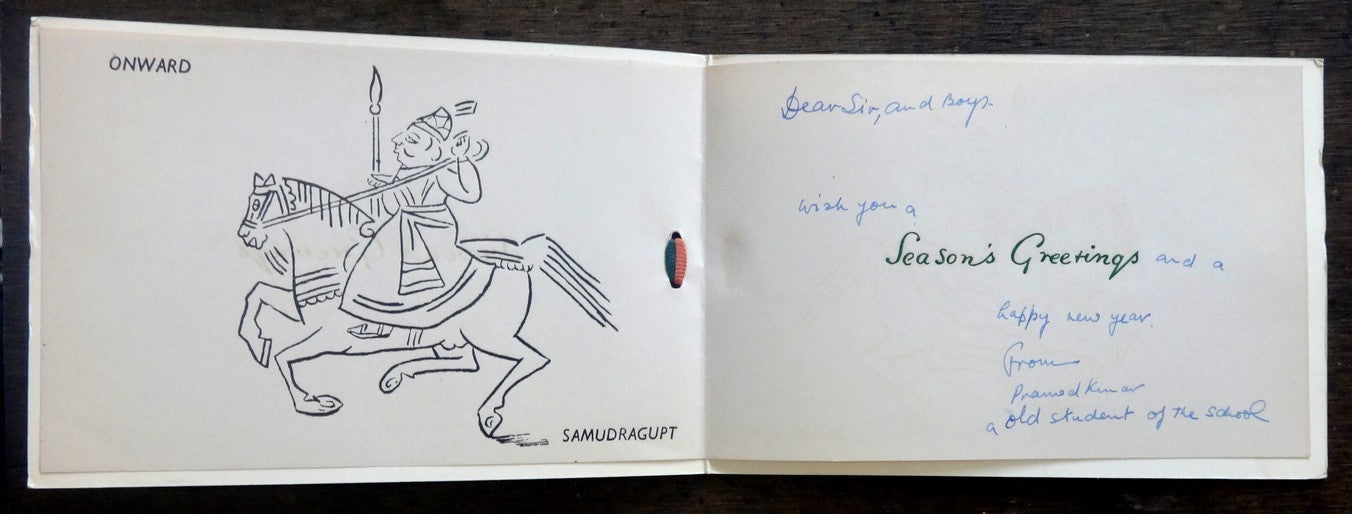 ONWARD
SAMUDRAGUPT
Dear Sir, and Boys.
wish you a
Season's Greetings and a
happy new year.
From
Pramod Kumar
a old student of the school